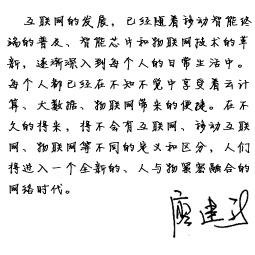 互联网的发展，已经随着移动智能终
端的普及、智能芯片和物联网技术的革
新，逐渐深入到每个人的日常生活中。
每个人都已经在不知不觉中享受着云计
算、大数据、物联网带来的便捷。在不
久的将来，将不会有互联网、移动互联
网、物联网等不同的定义和区分，人们
将进入一个全新的、人与物紧密融合的
网络时代。
廖建